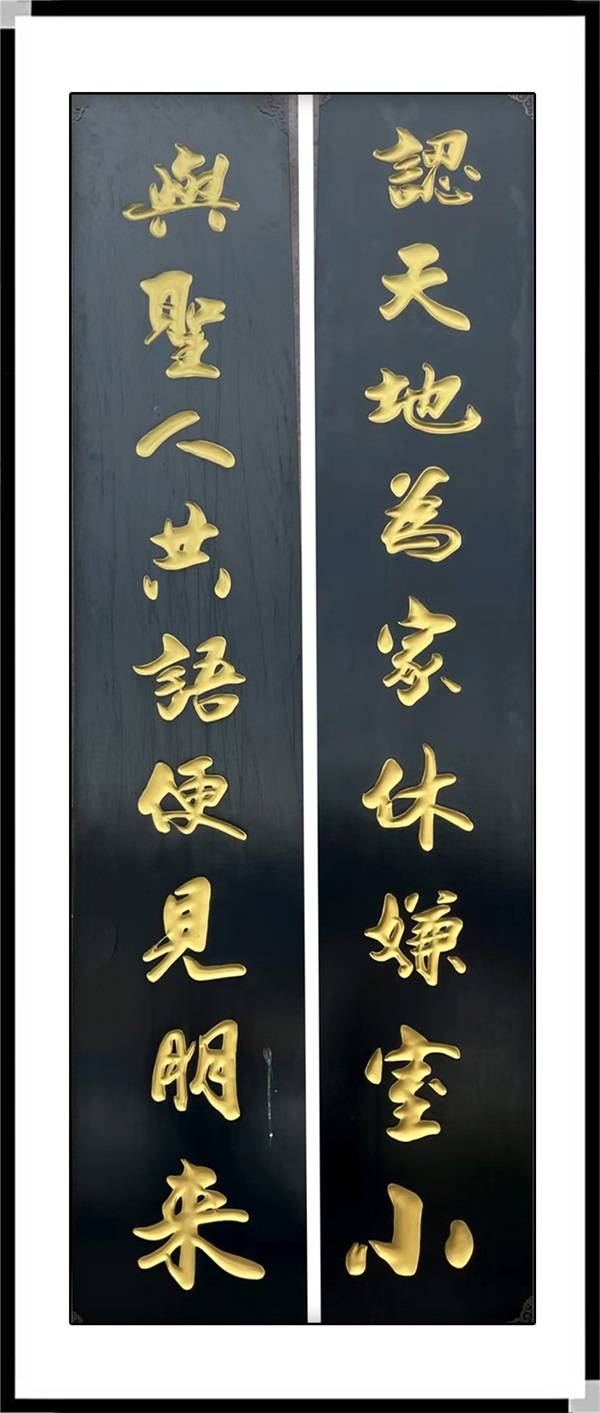 認天地為家休嫌室小
與聖人共語便見朋来